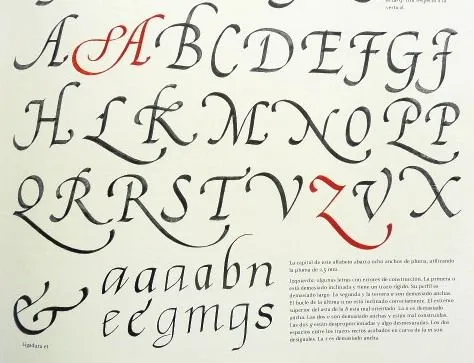 vertical.
A A A B C D E F G F
H L K M N O P P
Q R R S T V Z V X
a a a a b n
e e g m g s
Ligadura et
&
La capital de este alfabeto abarca ocho anchos de pluma, utilizando
la pluma de 2,5 mm.
Izquierda: algunas letras con errores de construcción. La primera a
está demasiado inclinada y tiene un trazo rígido. Su perfil es
demasiado largo. La segunda y la tercera a son demasiado anchas.
El bucle de la última a no está inclinado correctamente. El extremo
superior del asta de la b está mal orientado. La n es demasiado
ancha. Las dos e son demasiado anchas y están mal construidas.
Las dos g están desproporcionadas y algo desmesuradas. Los dos
espacios entre los trazos rectos acabados en curva de la m son
desiguales. La s es demasiado ancha.